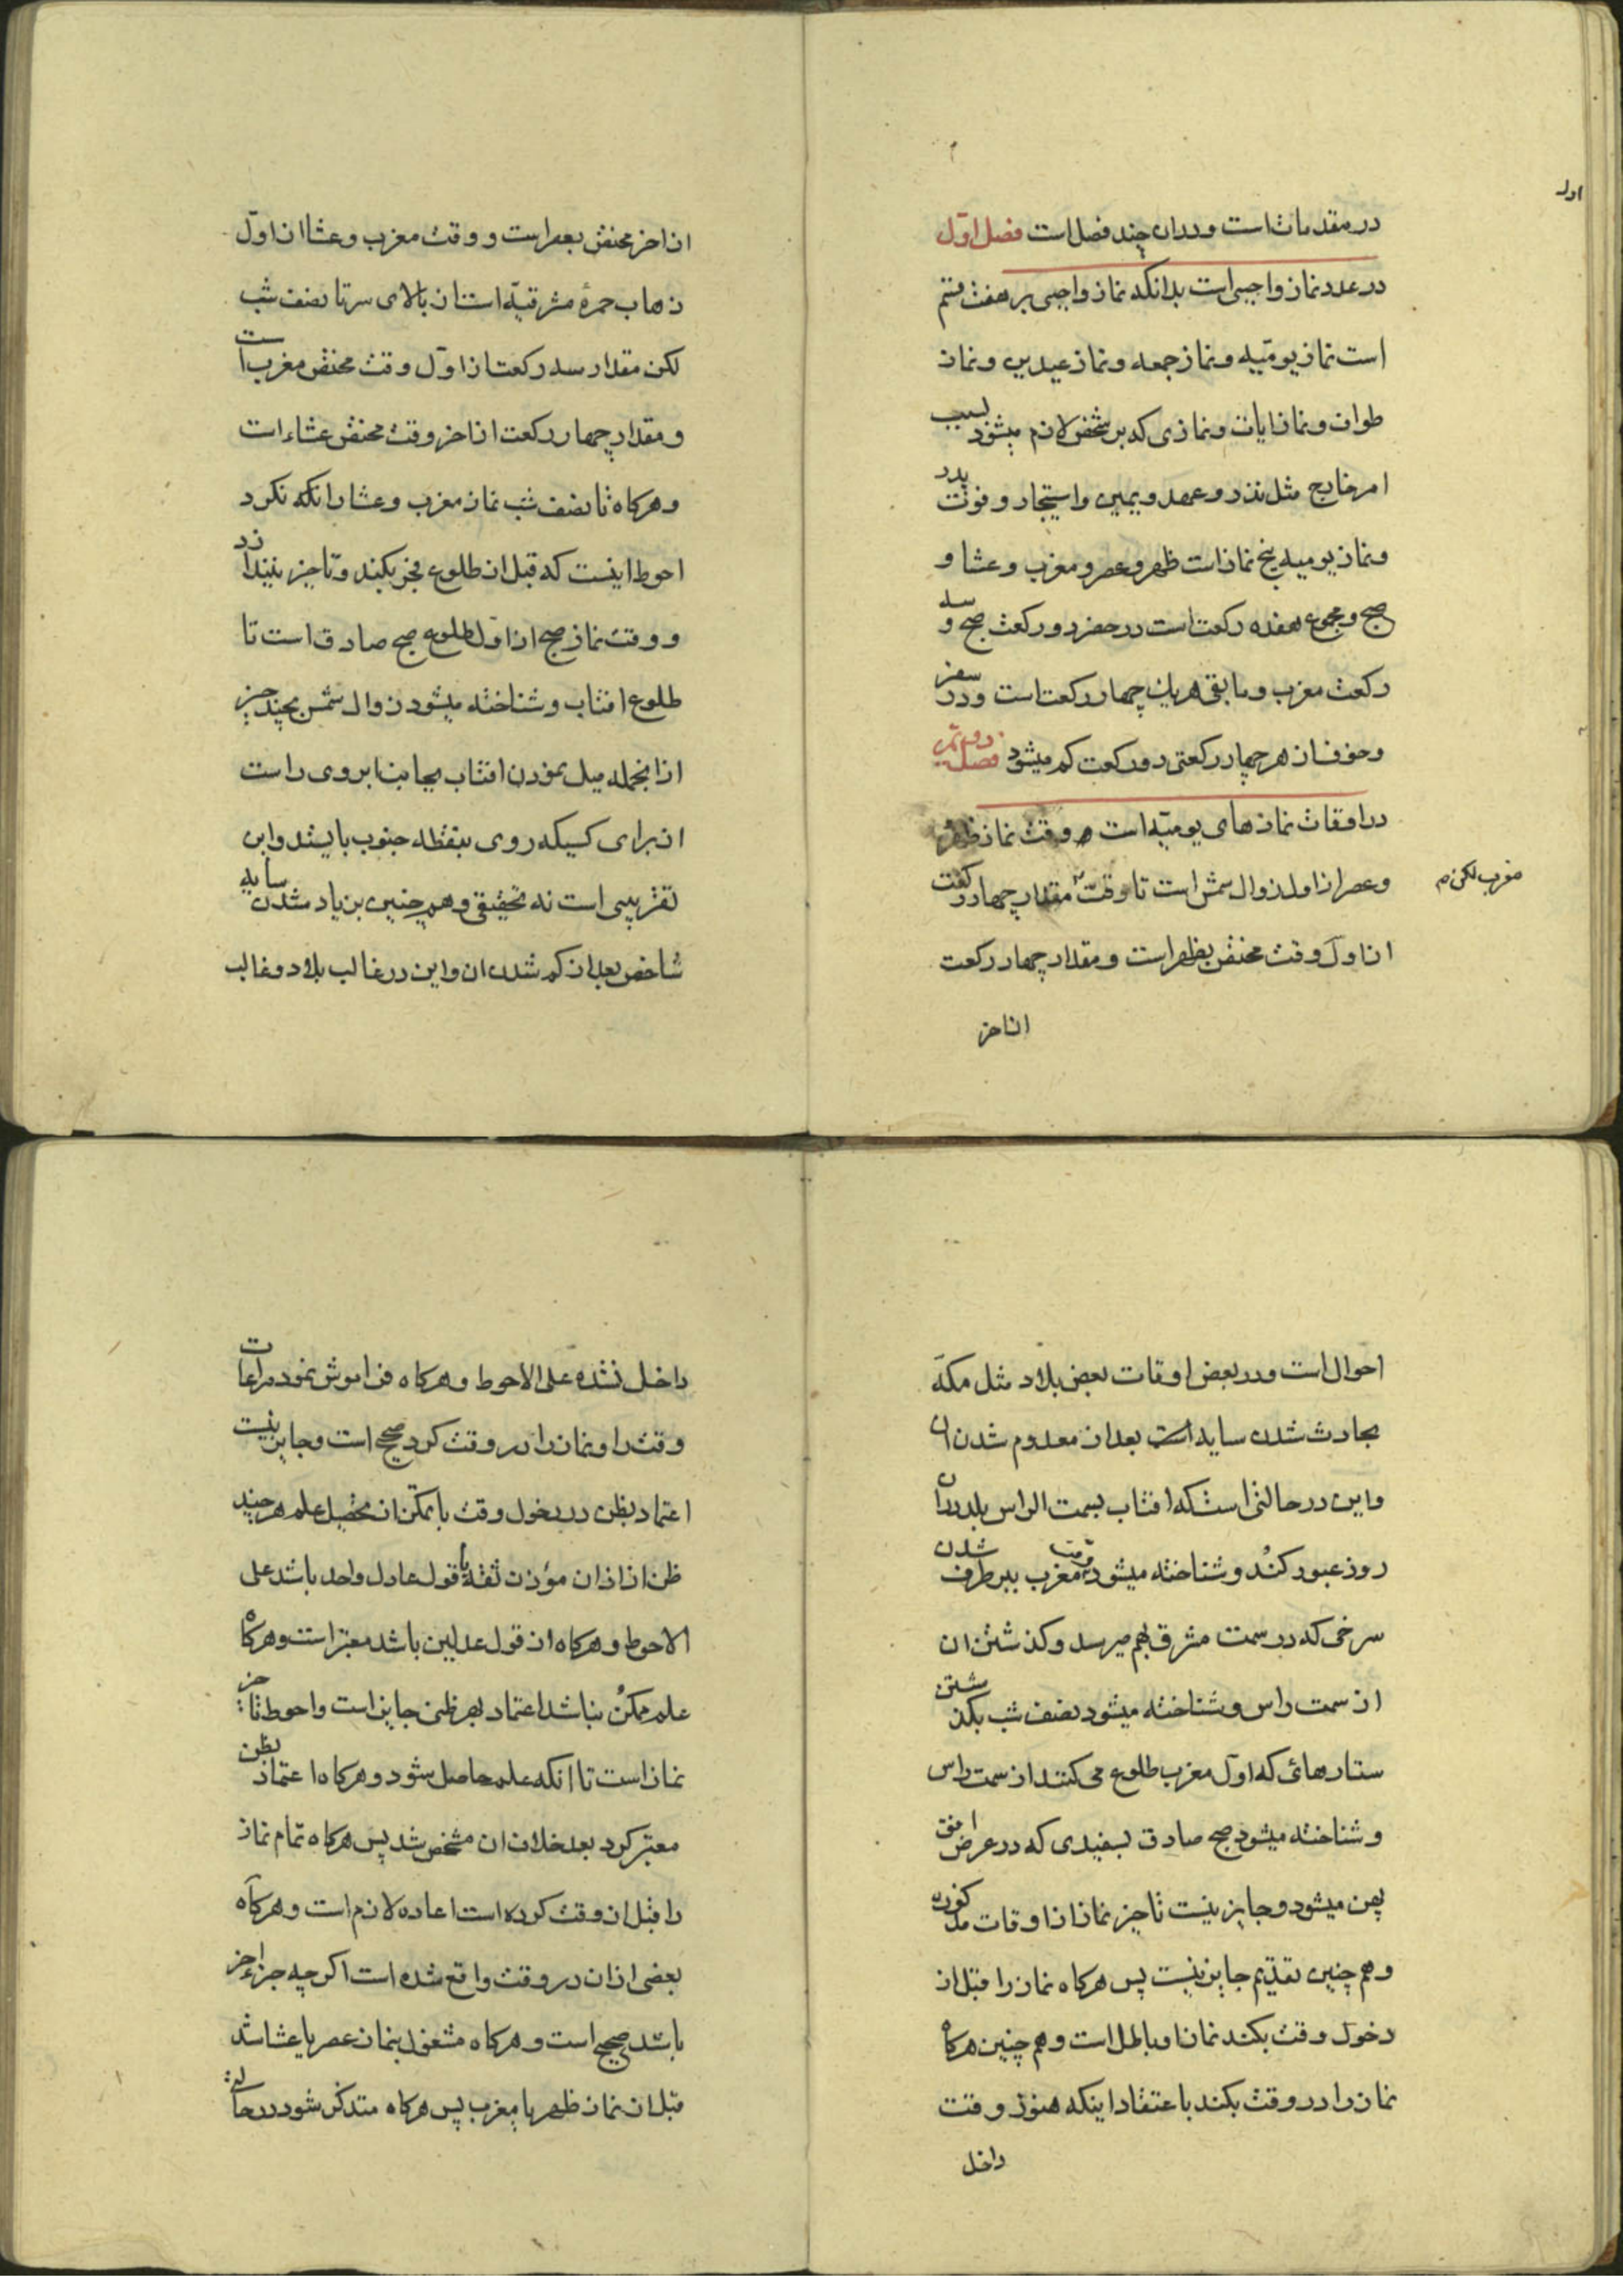 اول
در مقدمات است و در ان چند فصل است فصل اول
در عدد نماز واجبی است بدانکه نماز واجبی بر هفت قسم
است نماز یومیّه و نماز جمعه و نماز عیدین و نماز
طواف و نماز ایات و نمازی که بر شخص لازم میشود بسبب
امر خارج مثل نذر و عهد و یمین و استیجار و فوت پدر
و نماز یومیه پنج نماز است ظهر و عصر و مغرب و عشا و
صبح و مجموع هفده رکعت است در حضر دو رکعت صبح و سه
رکعت مغرب و مابقی هر یک چهار رکعت است و در سفر
و خوف از هر چهار رکعتی دو رکعت کم میشود فصل دویّم
در اوقات نماز های یومیّه است و وقت نماز ظهر
و عصر از اول زوال شمس است تا وقت مقدار چهار رکعت
مغرب لکن م
از اول وقت مختص بظهر است و مقدار چهار رکعت
از اخر
از اخر مختص بعصر است و وقت مغرب و عشا از اوّل
ذهاب حمرهٔ مشرقیّه است از بالای سر تا نصف شب
لکن مقدار سه رکعت از اوّل وقت مختص مغرب است
و مقدار چهار رکعت از اخر وقت مختص عشاء است
و هرکاه تا نصف شب نماز مغرب و عشا را نکه نکرد
احوط اینست که قبل از طلوع فجر بکند و تاخیر نیندازد
و وقت نماز صبح از اول طلوع صبح صادق است تا
طلوع افتاب و شناخته میشود زوال شمس بچند چیز
از انجمله میل نمودن افتاب بجانب ابروی راست
از برای کسیکه روی بنقطه جنوب بایستد و این
تقریبی است نه تحقیقی و هم چنین بزیاد شدن سایه
شاخص بعد از کم شدن ان و این در غالب بلاد و غالب
احوال است و در بعض اوقات بعض بلاد مثل مکه
بحادث شدن سایه است بعد از معدوم شدن ان
و این در حالتی است که افتاب بسمت الراس بلد در ان
روز عبور کند و شناخته میشود وقت مغرب ببرطرف شدن
سرخی که در سمت مشرق بهم میرسد و کذشتن ان
از سمت راس و شناخته میشود نصف شب بکذشتن
ستارهائی که اوّل مغرب طلوع می کنند از سمت راس
و شناخته میشود صبح صادق بسفیدی که در عرض افق
پهن میشود و جایز نیست تاخیر نماز از اوقات مذکوره
و هم چنین تقدیم جایز نیست پس هرکاه نماز را قبل از
دخول وقت بکند نماز او باطل است و هم چنین هرکاه
نماز را در وقت بکند باعتقاد اینکه هنوز وقت
داخل
داخل نشده علی الاحوط و هرکاه فراموش نمود مراعات
وقت را و نماز را در وقت کرد صحیح است و جایز نیست
اعتماد بظن در دخول وقت با تمکّن از تحصیل علم هر چند
ظن از اذان مؤذن ثقه یا قول عادل واحد باشد علی
الاحوط و هرکاه از قول عدلین باشد معتبر است و هرکاه
علم ممکن نباشد اعتماد بهر ظنی جایز است و احوط تاخیر
نماز است تا انکه علم حاصل شود و هرکاه اعتماد بظن
معتبر کرد بعد خلاف ان مشخص شد پس هرکاه تمام نماز
را قبل از وقت کرده است اعاده لازم است و هرکاه
بعضی از ان در وقت واقع شده است اکر چه جزء اخر
باشد صحیح است و هرکاه مشغول بنماز عصر یا عشا شد
قبل از نماز ظهر یا مغرب پس هرکاه متذکر شود در حالة